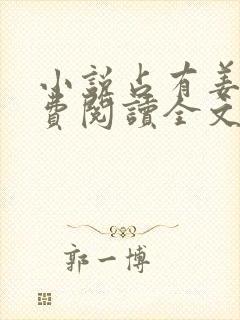 小說占有姜
費閱讀全文
郭一博